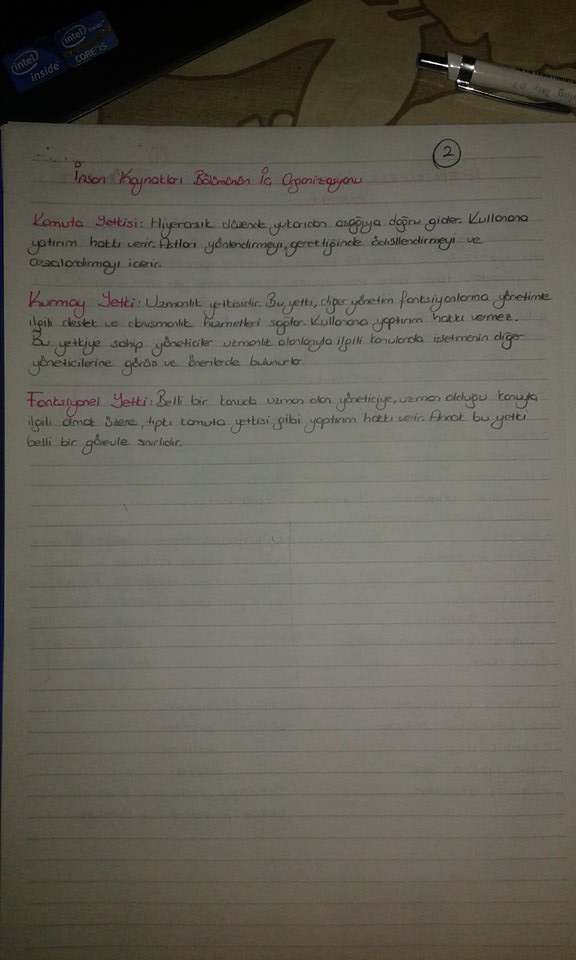 intel inside
intel inside™
CORE i5
2
İnsan Kaynakları Bölümünün İç Organizasyonu
Komuta Yetkisi: Hiyerarşik düzende yukarıdan aşağıya doğru gider. Kullanana
yatırım hakkı verir. Astları yönlendirmeyi, gerektiğinde ödüllendirmeyi ve
cezalandırmayı içerir.
Kurmay Yetki: Uzmanlık yetkisidir. Bu yetki, diğer yönetim fonksiyonlarına yönetimle
ilgili destek ve danışmanlık hizmetleri sağlar. Kullanana yaptırım hakkı vermez.
Bu yetkiye sahip yöneticiler uzmanlık alanlarıyla ilgili konularda işletmenin diğer
yöneticilerine görüş ve önerilerde bulunurlar.
Fonksiyonel Yetki: Belli bir konuda uzman olan yöneticiye, uzman olduğu konuyla
ilgili olmak üzere, tıpkı komuta yetkisi gibi yaptırım hakkı verir. Ancak bu yetki
belli bir görevle sınırlıdır.